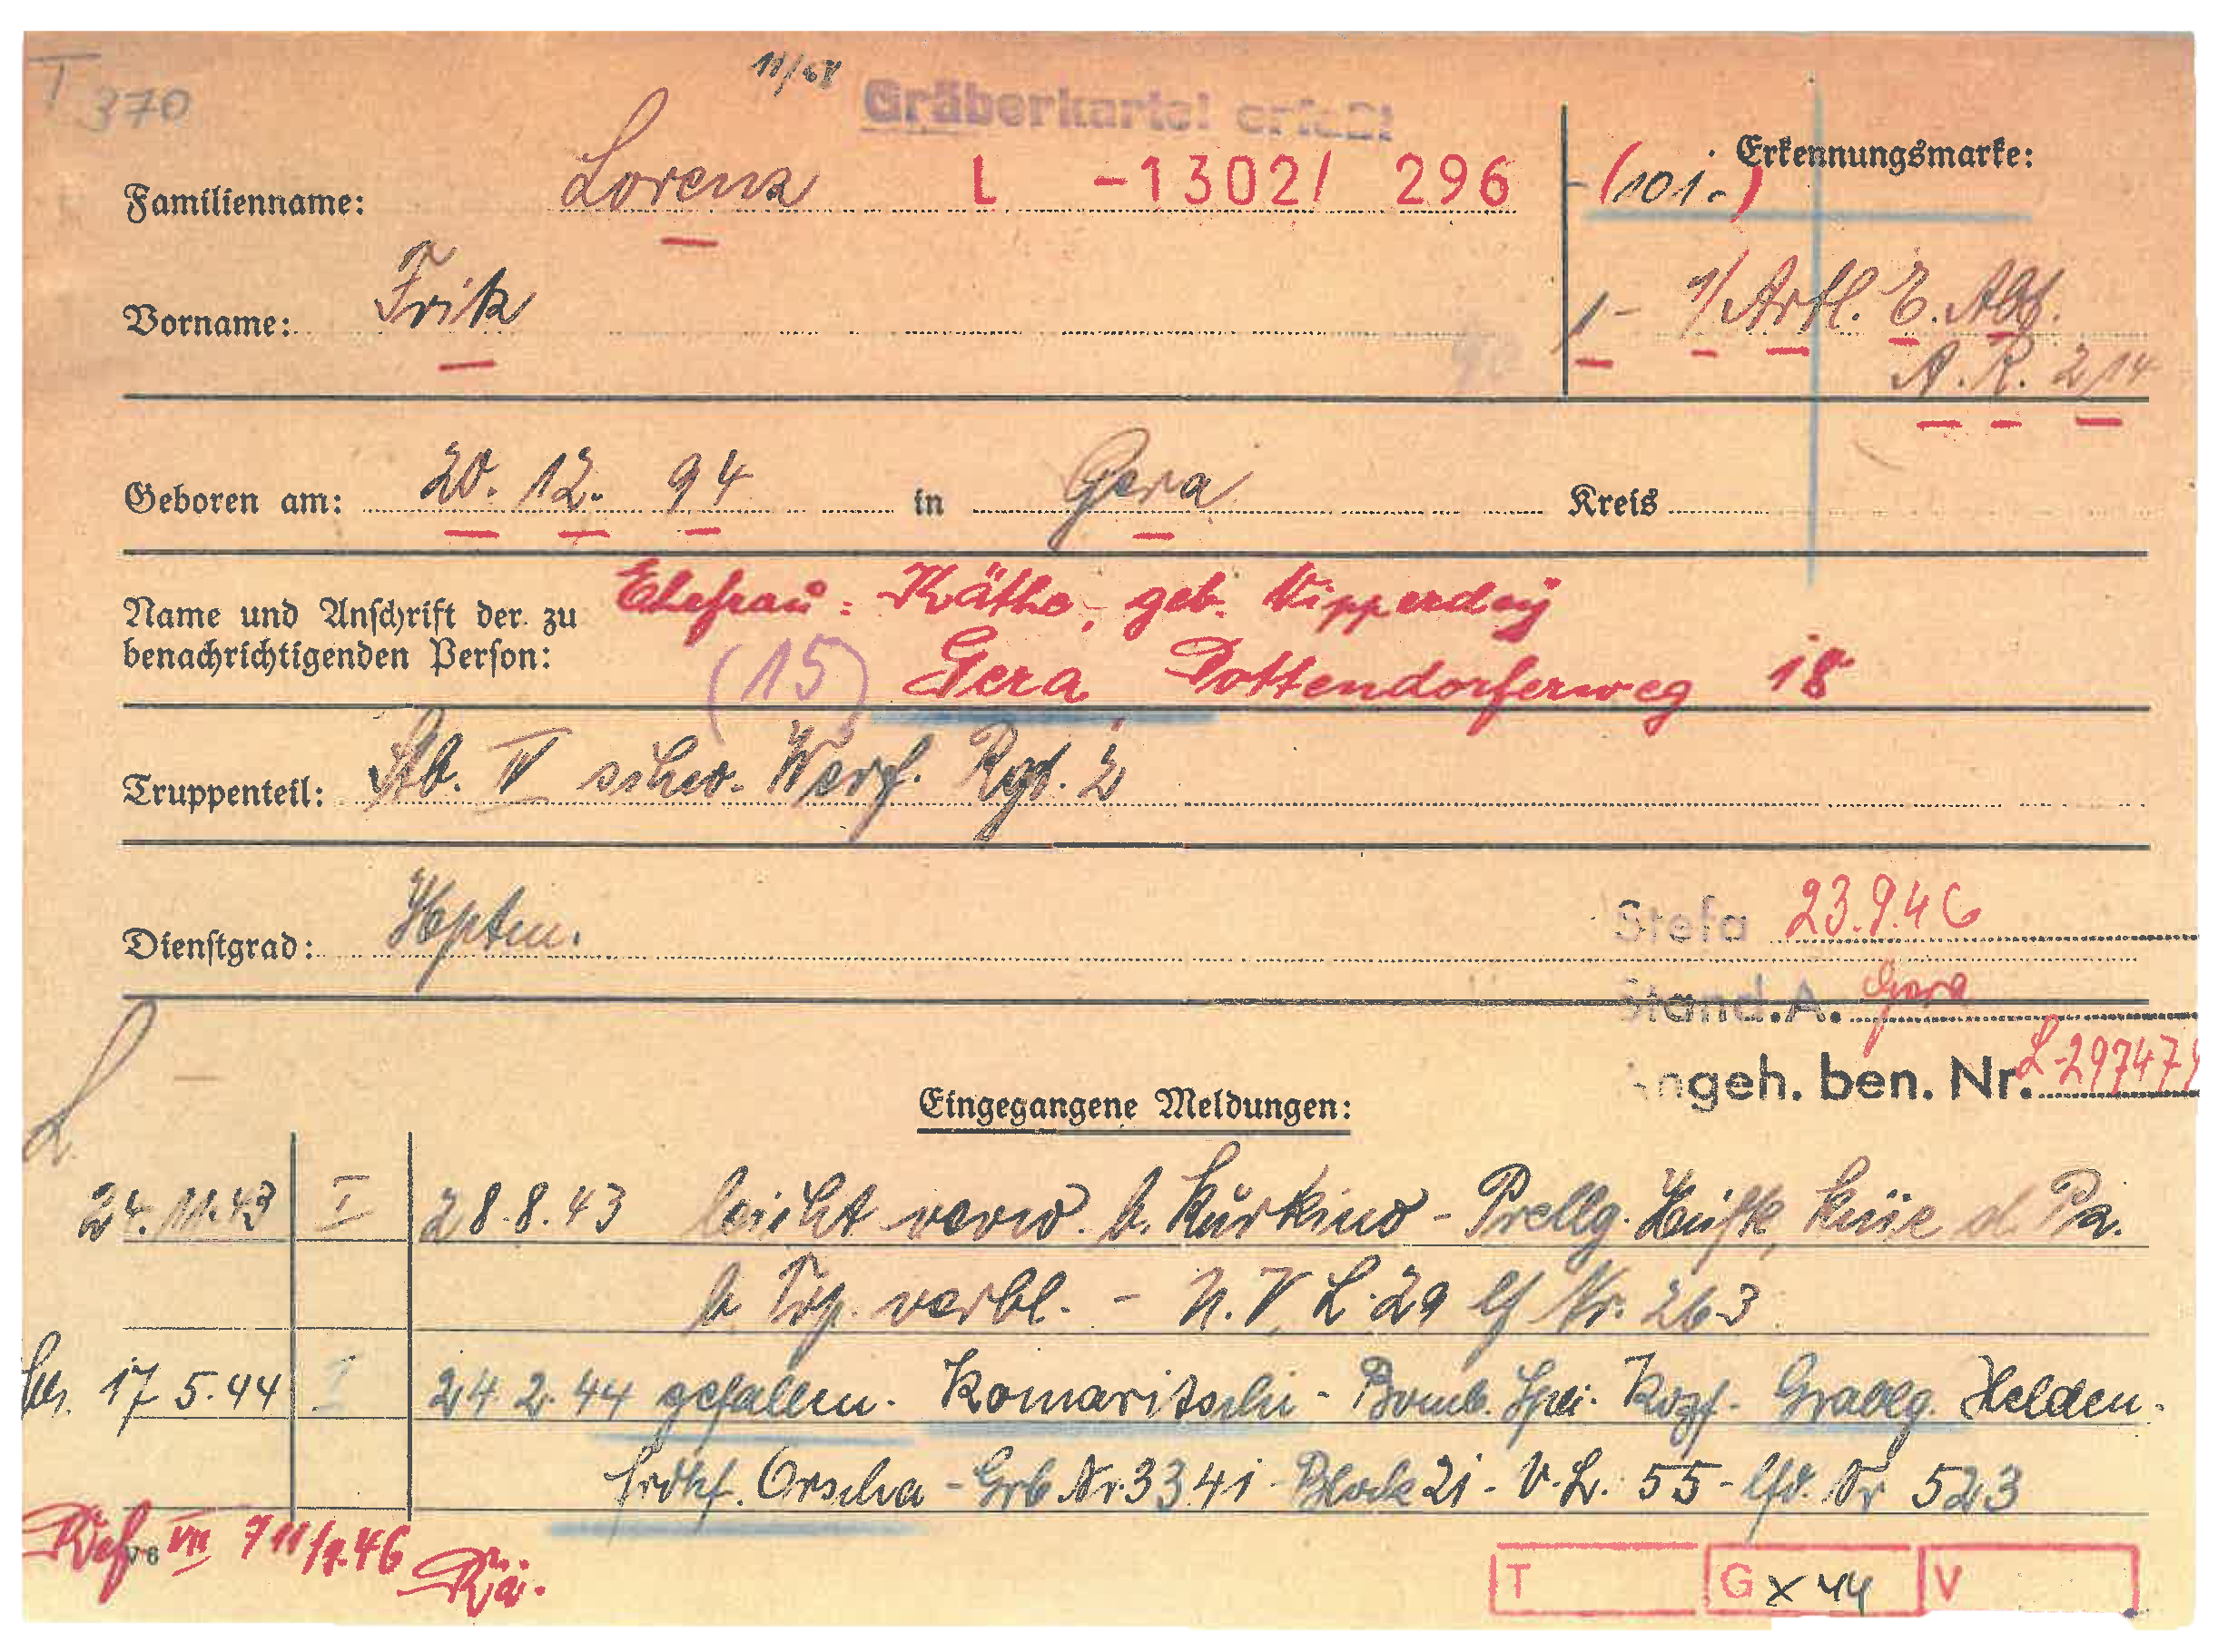 T 370
11/68 Gräberkartei erfaßt
Familienname: Lorenz L -1302/ 296
Erkennungsmarke:
(101.-)
Vorname: Fritz
1- 1/Artl. E. Abt.
A. R. 214
Geboren am: 20. 12. 94 in Gera Kreis
Name und Anschrift der zu benachrichtigenden Person:
Ehefrau: Käthe, geb. Nipperdey
(15) Gera Pottendorferweg 18
Truppenteil: Stb. IV schw. Werf. Rgt. 2
Dienstgrad: Hptm.
Stefa 23.9.46
Stand.A. Gera
Angeh. ben. Nr. L-297479
L
Eingegangene Meldungen:
24.11.43 I 28.8.43 leicht verw. b. Kurkino - Prellg. Hüfte, Knie d. Pz.
b. Trp. verbl. - N. V. L. 29 lf Nr. 263
17.5.44 I 24.2.44 gefallen. Komaritschi - Bomb. Spli. Kopf - Grablg. Helden-
frdhf. Orscha - Grb Nr. 3341 - Block 21 - V. L. 55 - lfd. Nr 523
VII 711/9.46 Rä.
T G x 44 V